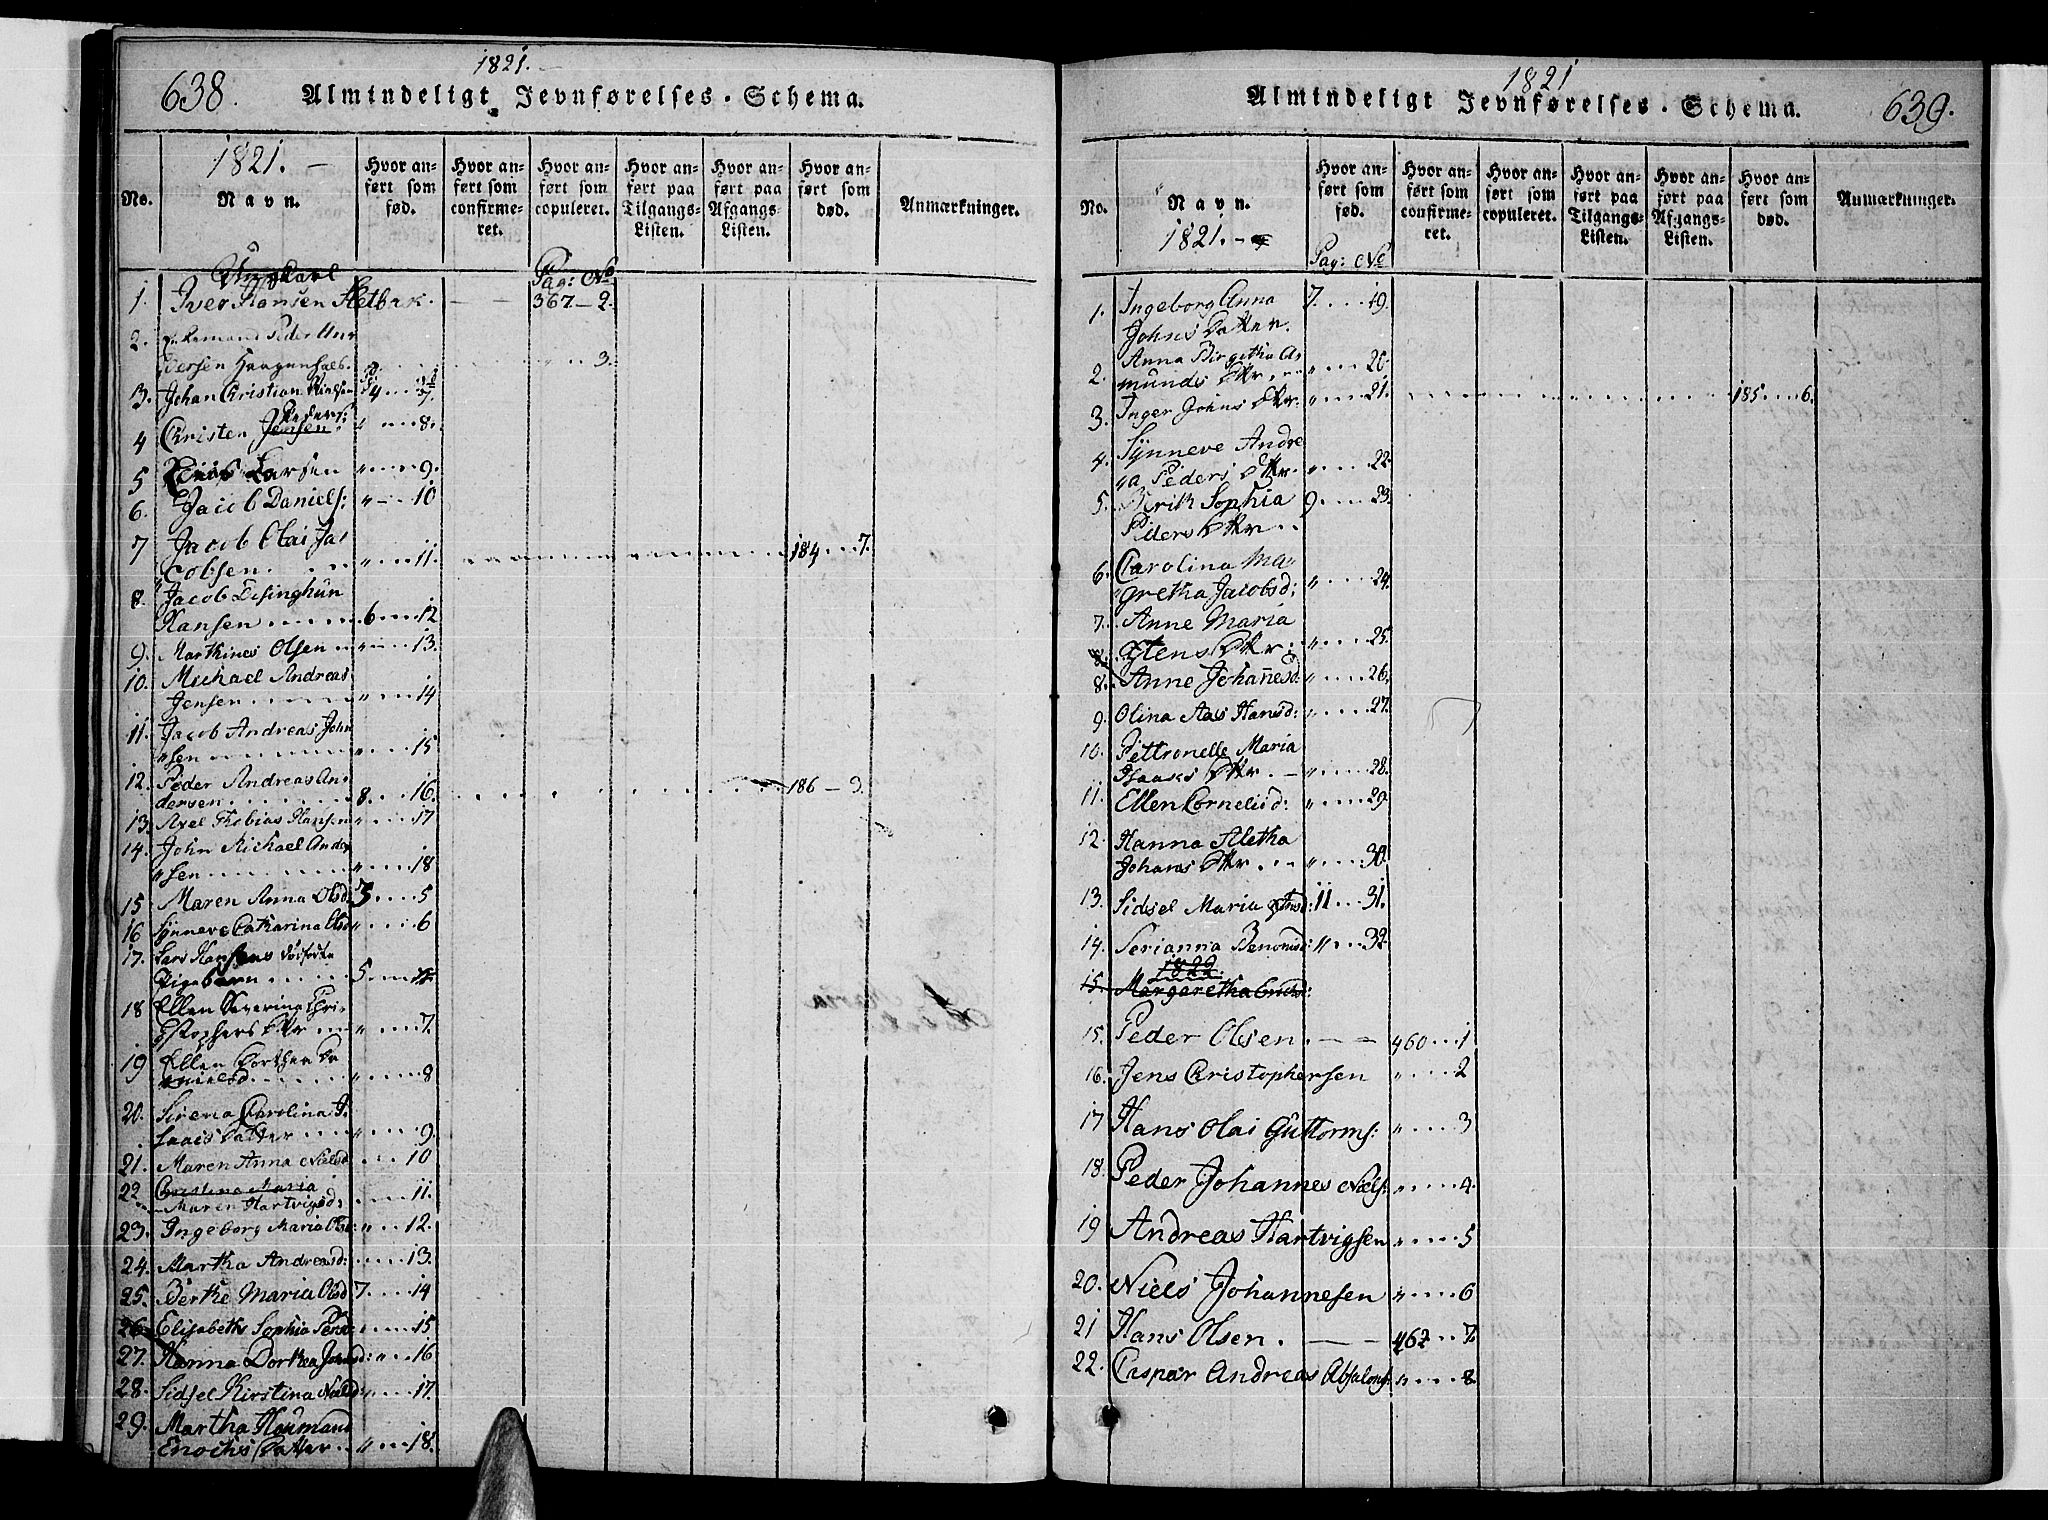 638.
1821.
Almindeligt Jevnførelses-Schema.
No.
1821.
Navn.
Hvor anført som fød.
Hvor anført som confirmeret.
Hvor anført som copuleret.
Hvor anført paa Tilgangs-Listen.
Hvor anført paa Afgangs-Listen.
Hvor anført som død.
Anmærkninger.
Pag: No
1. Ungkarl
Iver Hansen 367 - 2.
2. Enkemand Peder An
dersen " 3.
3. Johan Christian 4 7.
4 Christen Jensen Peders: " 8.
5 Larsen " 9.
6. Jacob Daniels: " 10
7 Jacob Olai Ja
cobsen. " 11. 184 7.
8. Jacob
Hansen 6 12
9. Marthines Olsen " 13.
10. Michael Andreas
Jensen " 14
11. Jacob Andreas John
"sen " 15
12. Peder Andreas An
dersen 8 16. 186 - 9.
13. Axel Thobias Hansen " 17
14. John Michael Andr
"sen " 18
15 Maren Anna Olsd 3 5
16 Synneve Catharina Olsd " 6
17. Lars Hansens dödfödte
Pigebarn 5
18 Ellen Severina Chri
stophers Dttr " 7.
19 Ellen Dorthea Da
nielsd " 8
20. Sirena Carolina I
saacs Datter " 9.
21. Maren Anna Nielsd 10
22 Christina Maria
Maren Hartvigsd: 11.
23. Ingeborg Maria Olsd: " 12.
24. Martha Andreasd: 13.
25. Berthe Maria Olsd 7. 14
26. Elisabeth Sophia " 15
27. Hanna Dorthea Johnsd: " 16
28. Sidsel Kirstina Nielsd " 17.
29. Martha
Enochs Datter " 18.
1821
Almindeligt Jevnførelses-Schema.
639.
No.
Navn.
1821.
Hvor anført som fød.
Hvor anført som confirmeret.
Hvor anført som copuleret.
Hvor anført paa Tilgangs-Listen.
Hvor anført paa Afgangs-Listen.
Hvor anført som død.
Anmærkninger.
Pag: No
1. Ingeborg Anna 7. 19.
Johns Datter.
2. Anna Birgitha A
munds Dttr. " 20.
3. Inger Johns Dttr. " 21. 185 6.
4. Synneve Andre
"a Peders Dttr. " 22.
5. Berith Sophia 9 23.
Peders Dttr
6. Carolina Ma
gretha Jacobsd: " 24.
7. Anne Maria
Jtens Dttr: " 25.
8. Anne Johannesd: " 26.
9. Olina Aas Hansd: " 27.
10. Pettronelle Maria
Isaaks Dttr. " 28.
11. Ellen Cornelisd: " 29.
12. Hanna Aletha
Johans Dttr " 30.
13. Sidsel Maria 11 31.
14. Serianna Benonisd: " 32.
1822.
15. Margaretha
15. Peder Olsen. 460 1
16. Jens Christophersen " 2
17 Hans Olai Guttorms: " 3
18. Peder Johannes Niels: " 4.
19 Andreas Hartvigsen " 5
20. Niels Johannesen " 6
21 Hans Olsen. 462 7.
22. Caspar Andreas Absalons: " 8.